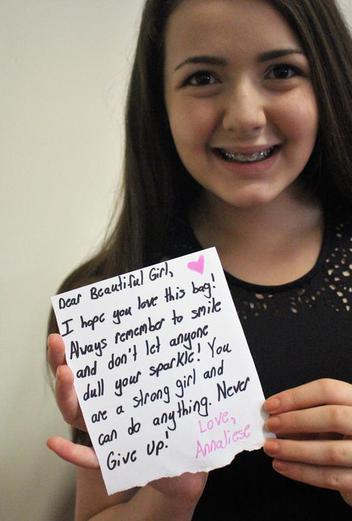 Dear Beautiful Girl,
I hope you love this bag!
Always remember to smile
and don't let anyone
dull your sparkle! You
are a strong girl and
can do anything. Never
Give up!
Love,
Annaliese